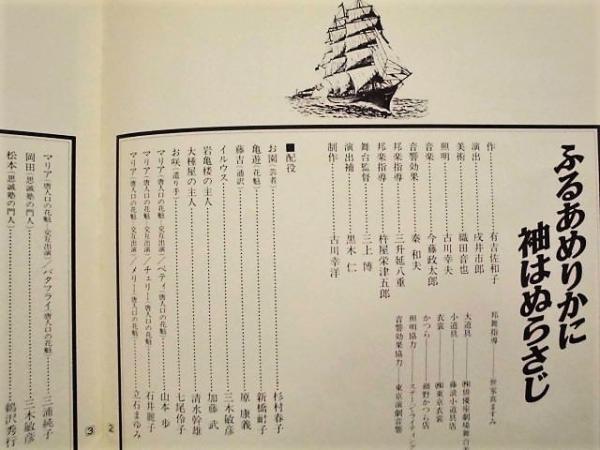 ふるあめりかに
袖はぬらさじ
作 有吉佐和子
演出 戌井市郎
美術 織田音也
照明 古川幸夫
音楽 今藤政太郎
音響効果 秦和夫
邦楽指導 三升延八重
邦楽指導 杵屋栄津五郎
舞台監督 三上博
演出補 黒木仁
制作 古川幸洋
邦舞指導 世家真ますみ
大道具 ㈱俳優座劇場舞台
小道具 藤浪小道具店
衣裳 ㈱東京衣裳
かつら 細野かつら店
照明協力 ステージ・ライティング
音響効果協力 東京演劇音響
■配役
お園(芸者) 杉村春子
亀遊(花魁) 新橋耐子
藤吉(通訳) 原康義
イルウス 三木敏彦
岩亀楼の主人 加藤武
大種屋の主人 清水幹雄
お咲(遣り手) 七尾伶子
マリア(唐人口の花魁・交互出演)/ペティ(唐人口の花魁) 山本歩
マリア(唐人口の花魁・交互出演)/チェリー(唐人口の花魁) 石井麗子
マリア(唐人口の花魁・交互出演)/メリー(唐人口の花魁) 立石まゆみ
②
③
マリア(唐人口の花魁・交互出演)/バタフライ(唐人口の花魁) 三浦純子
岡田(思誠塾の門人) 三木敏彦
松本(思誠塾の門人) 鵜沢秀行